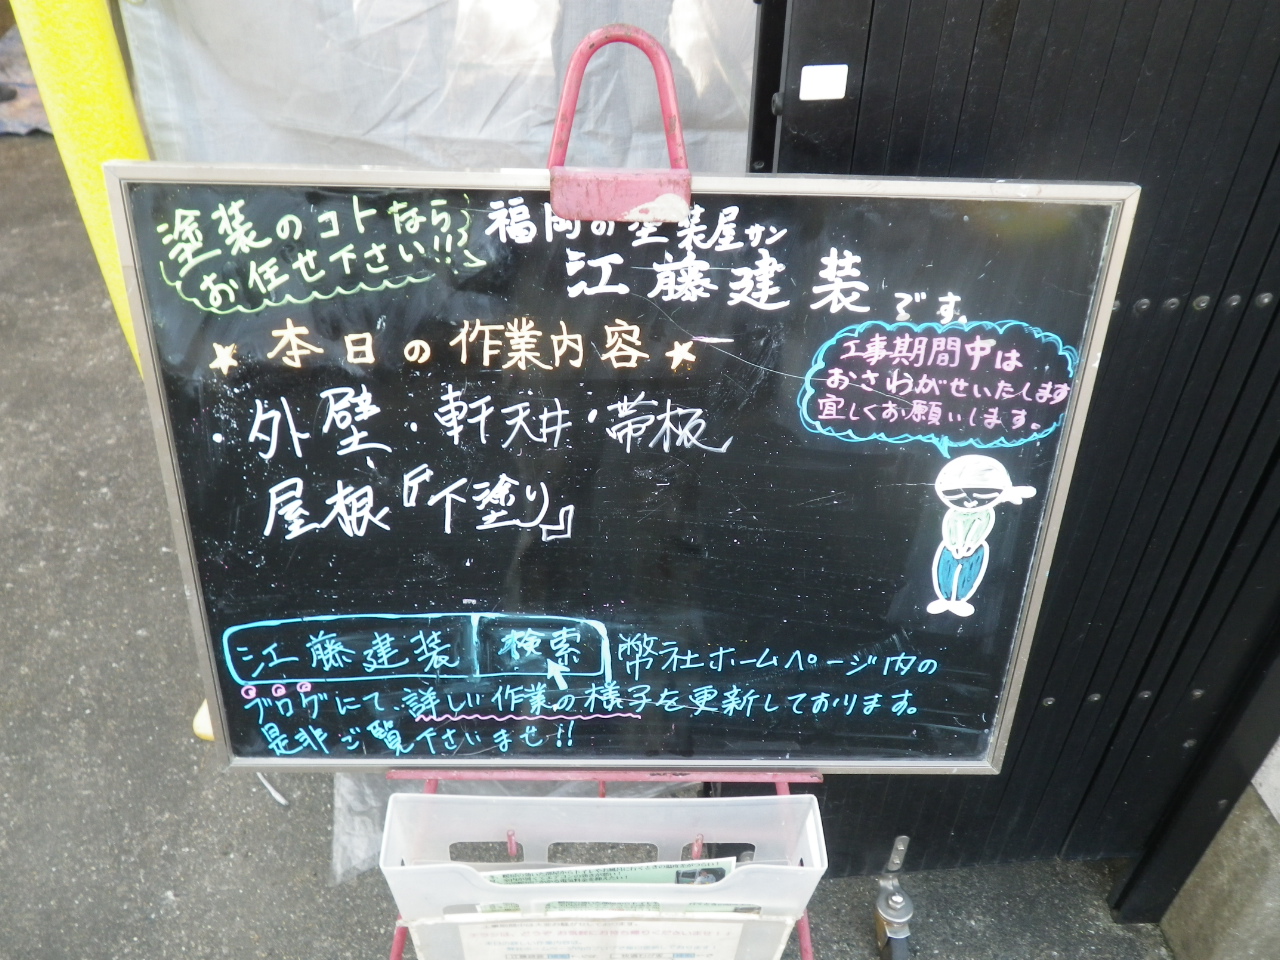 塗装のコトなら
お任せ下さい!!
福岡の塗装屋サン
江藤建装です。
★本日の作業内容★
・外壁・軒天井・帯板
屋根『下塗り』
工事期間中は
おさわがせいたします
宜しくお願いします。
江藤建装 検索 弊社ホームページ内の
ブログにて詳しい作業の様子を更新しております。
是非ご覧下さいませ!!